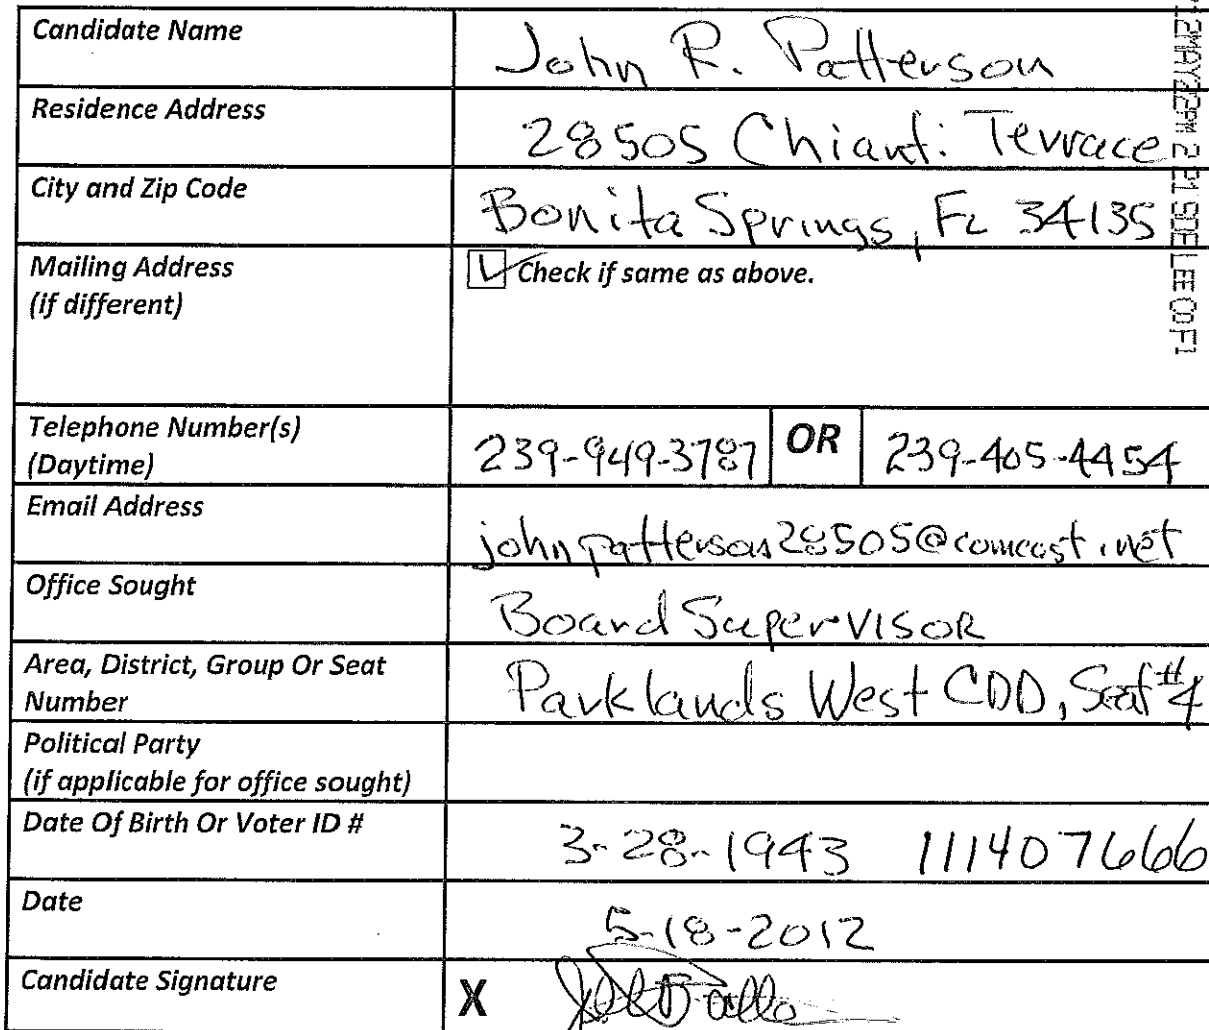 Candidate Name John R. Patterson
Residence Address 28505 Chianti Terrace
City and Zip Code Bonita Springs, FL 34135
Mailing Address
(if different) ☑ Check if same as above.
Telephone Number(s)
(Daytime) 239-949-3787 OR 239-405-4454
Email Address johnpatterson28505@comcast.net
Office Sought Board Supervisor
Area, District, Group Or Seat
Number Parklands West CDD, Seat #4
Political Party
(if applicable for office sought)
Date Of Birth Or Voter ID # 3-28-1943 111407666
Date 5-18-2012
Candidate Signature X